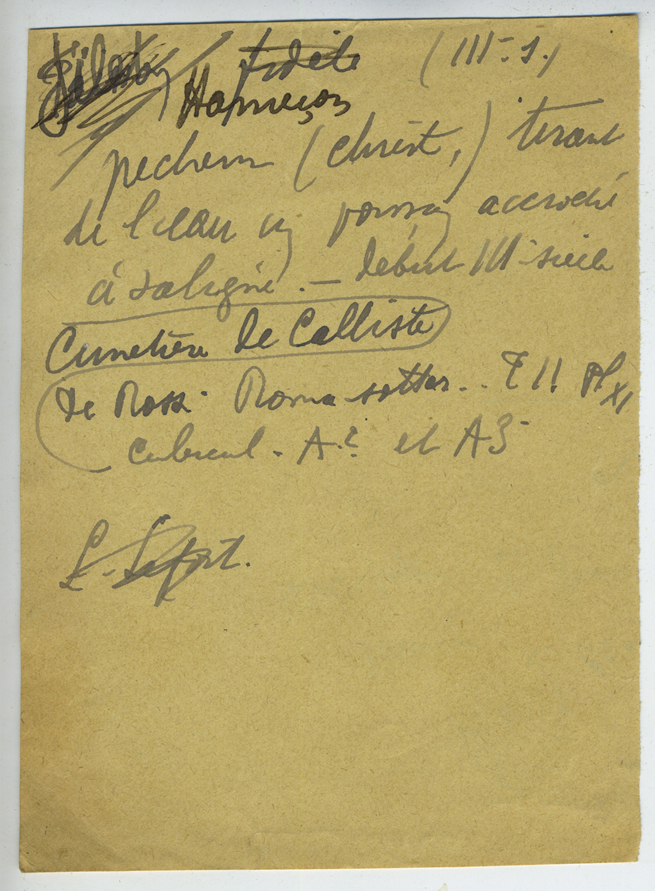 fidèle (IIIe s.)
Hameçon
pecheur (christ,) tirant
de l'eau un poisson accroché
à sa ligne. — début IIIe siecle
Cimetière de Calliste
de Rossi. Roma sotter.. T II Pl XI
cubicul. A2 et A3
L. Lefort.